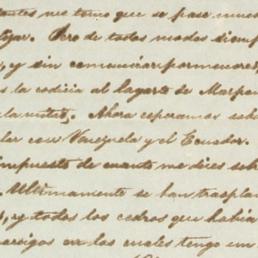 antes nos temo que se pase mucho
tizar. Pero de todos modos siemp
, y sin comunicar pormenores,
la codicia al lagarto de
la mitad. Ahora esperamos sab
lar con Venezuela y el Ecuador.
impuesto de cuanto me dices sobr
. Ultimamente se han trasplan
, y todos los cedros que habia
en los cuales tengo un